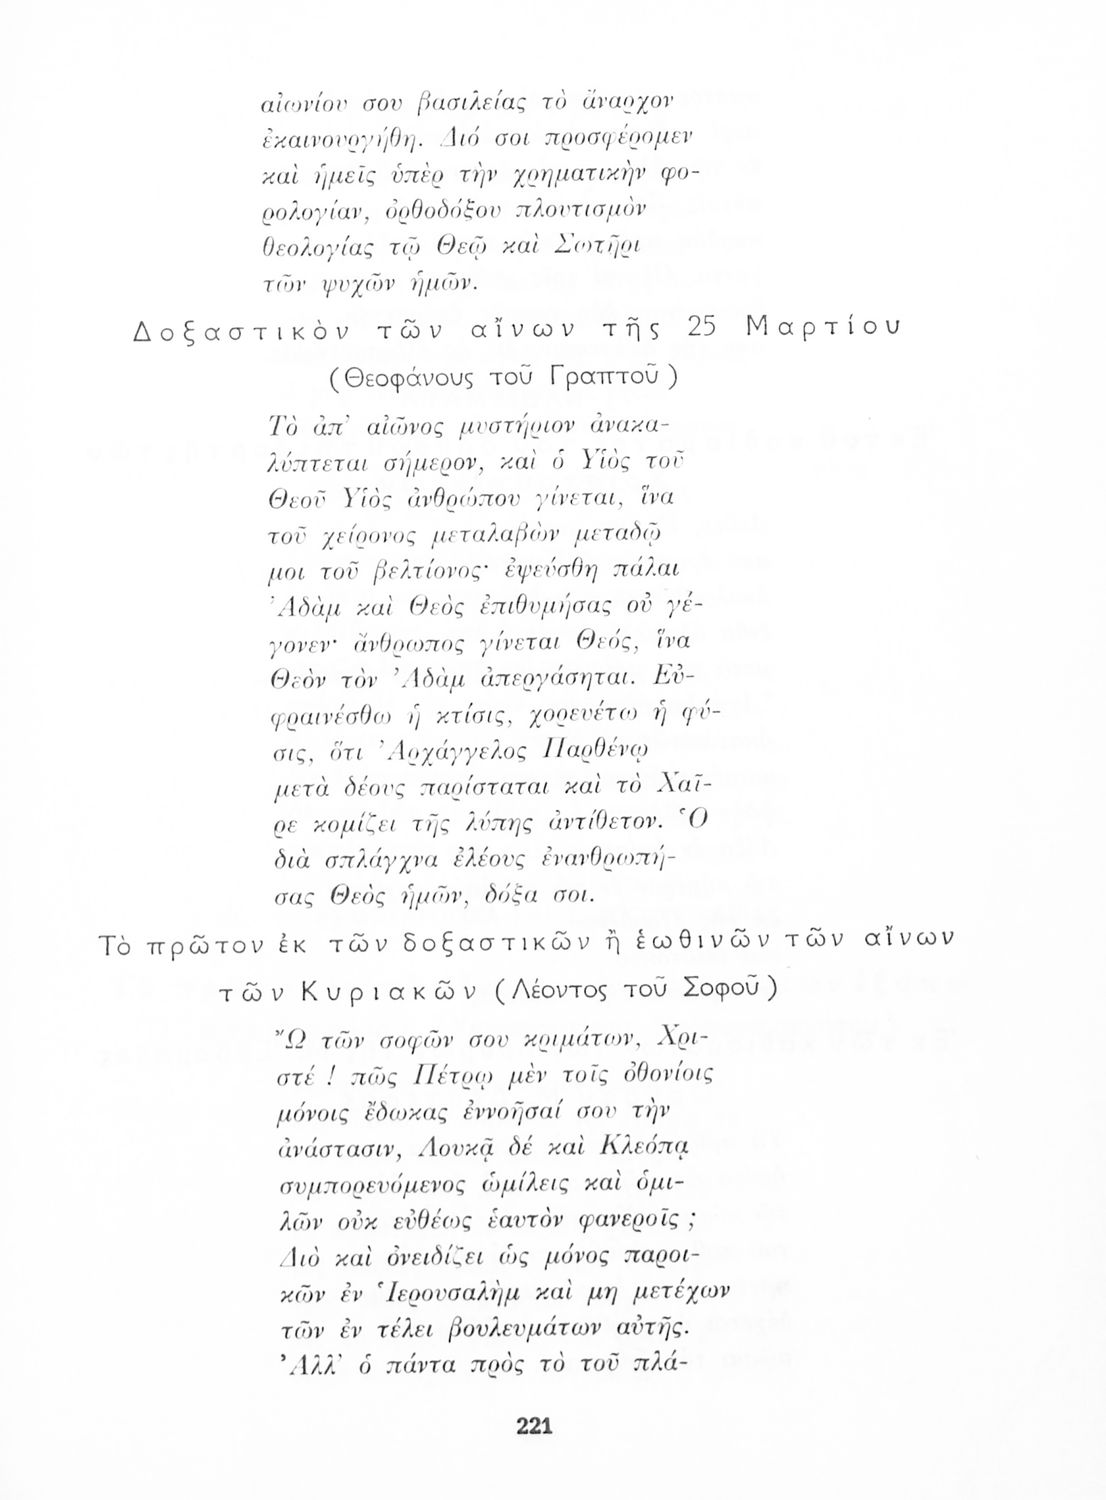 αἰωνίου σου βασιλείας τὸ ἄναρχον
ἐκαινουργήθη. Διό σοι προσφέρομεν
καὶ ἡμεῖς ὑπὲρ τὴν χρηματικὴν φο-
ρολογίαν, ὀρθοδόξου πλουτισμὸν
θεολογίας τῷ Θεῷ καὶ Σωτῆρι
τῶν ψυχῶν ἡμῶν.
Δοξαστικὸν τῶν αἴνων τῆς 25 Μαρτίου
(Θεοφάνους τοῦ Γραπτοῦ)
Τὸ ἀπ' αἰῶνος μυστήριον ἀνακα-
λύπτεται σήμερον, καὶ ὁ Υἱὸς τοῦ
Θεοῦ Υἱὸς ἀνθρώπου γίνεται, ἵνα
τοῦ χείρονος μεταλαβὼν μεταδῷ
μοι τοῦ βελτίονος· ἐψεύσθη πάλαι
Ἀδὰμ καὶ Θεὸς ἐπιθυμήσας οὐ γέ-
γονεν· ἄνθρωπος γίνεται Θεός, ἵνα
Θεὸν τὸν Ἀδὰμ ἀπεργάσηται. Εὐ-
φραινέσθω ἡ κτίσις, χορευέτω ἡ φύ-
σις, ὅτι Ἀρχάγγελος Παρθένῳ
μετὰ δέους παρίσταται καὶ τὸ Χαῖ-
ρε κομίζει τῆς λύπης ἀντίθετον. Ὁ
διὰ σπλάγχνα ἐλέους ἐνανθρωπή-
σας Θεὸς ἡμῶν, δόξα σοι.
Τὸ πρῶτον ἐκ τῶν δοξαστικῶν ἢ ἑωθινῶν τῶν αἴνων
τῶν Κυριακῶν (Λέοντος τοῦ Σοφοῦ)
Ὢ τῶν σοφῶν σου κριμάτων, Χρι-
στέ ! πῶς Πέτρῳ μὲν τοῖς ὀθονίοις
μόνοις ἔδωκας ἐννοῆσαί σου τὴν
ἀνάστασιν, Λουκᾷ δέ καὶ Κλεόπᾳ
συμπορευόμενος ὡμίλεις καὶ ὁμι-
λῶν οὐκ εὐθέως ἑαυτὸν φανεροῖς ;
Διὸ καὶ ὀνειδίζει ὡς μόνος παροι-
κῶν ἐν Ἱερουσαλὴμ καὶ μη μετέχων
τῶν ἐν τέλει βουλευμάτων αὐτῆς.
Ἀλλ' ὁ πάντα πρὸς τὸ τοῦ πλά-
221